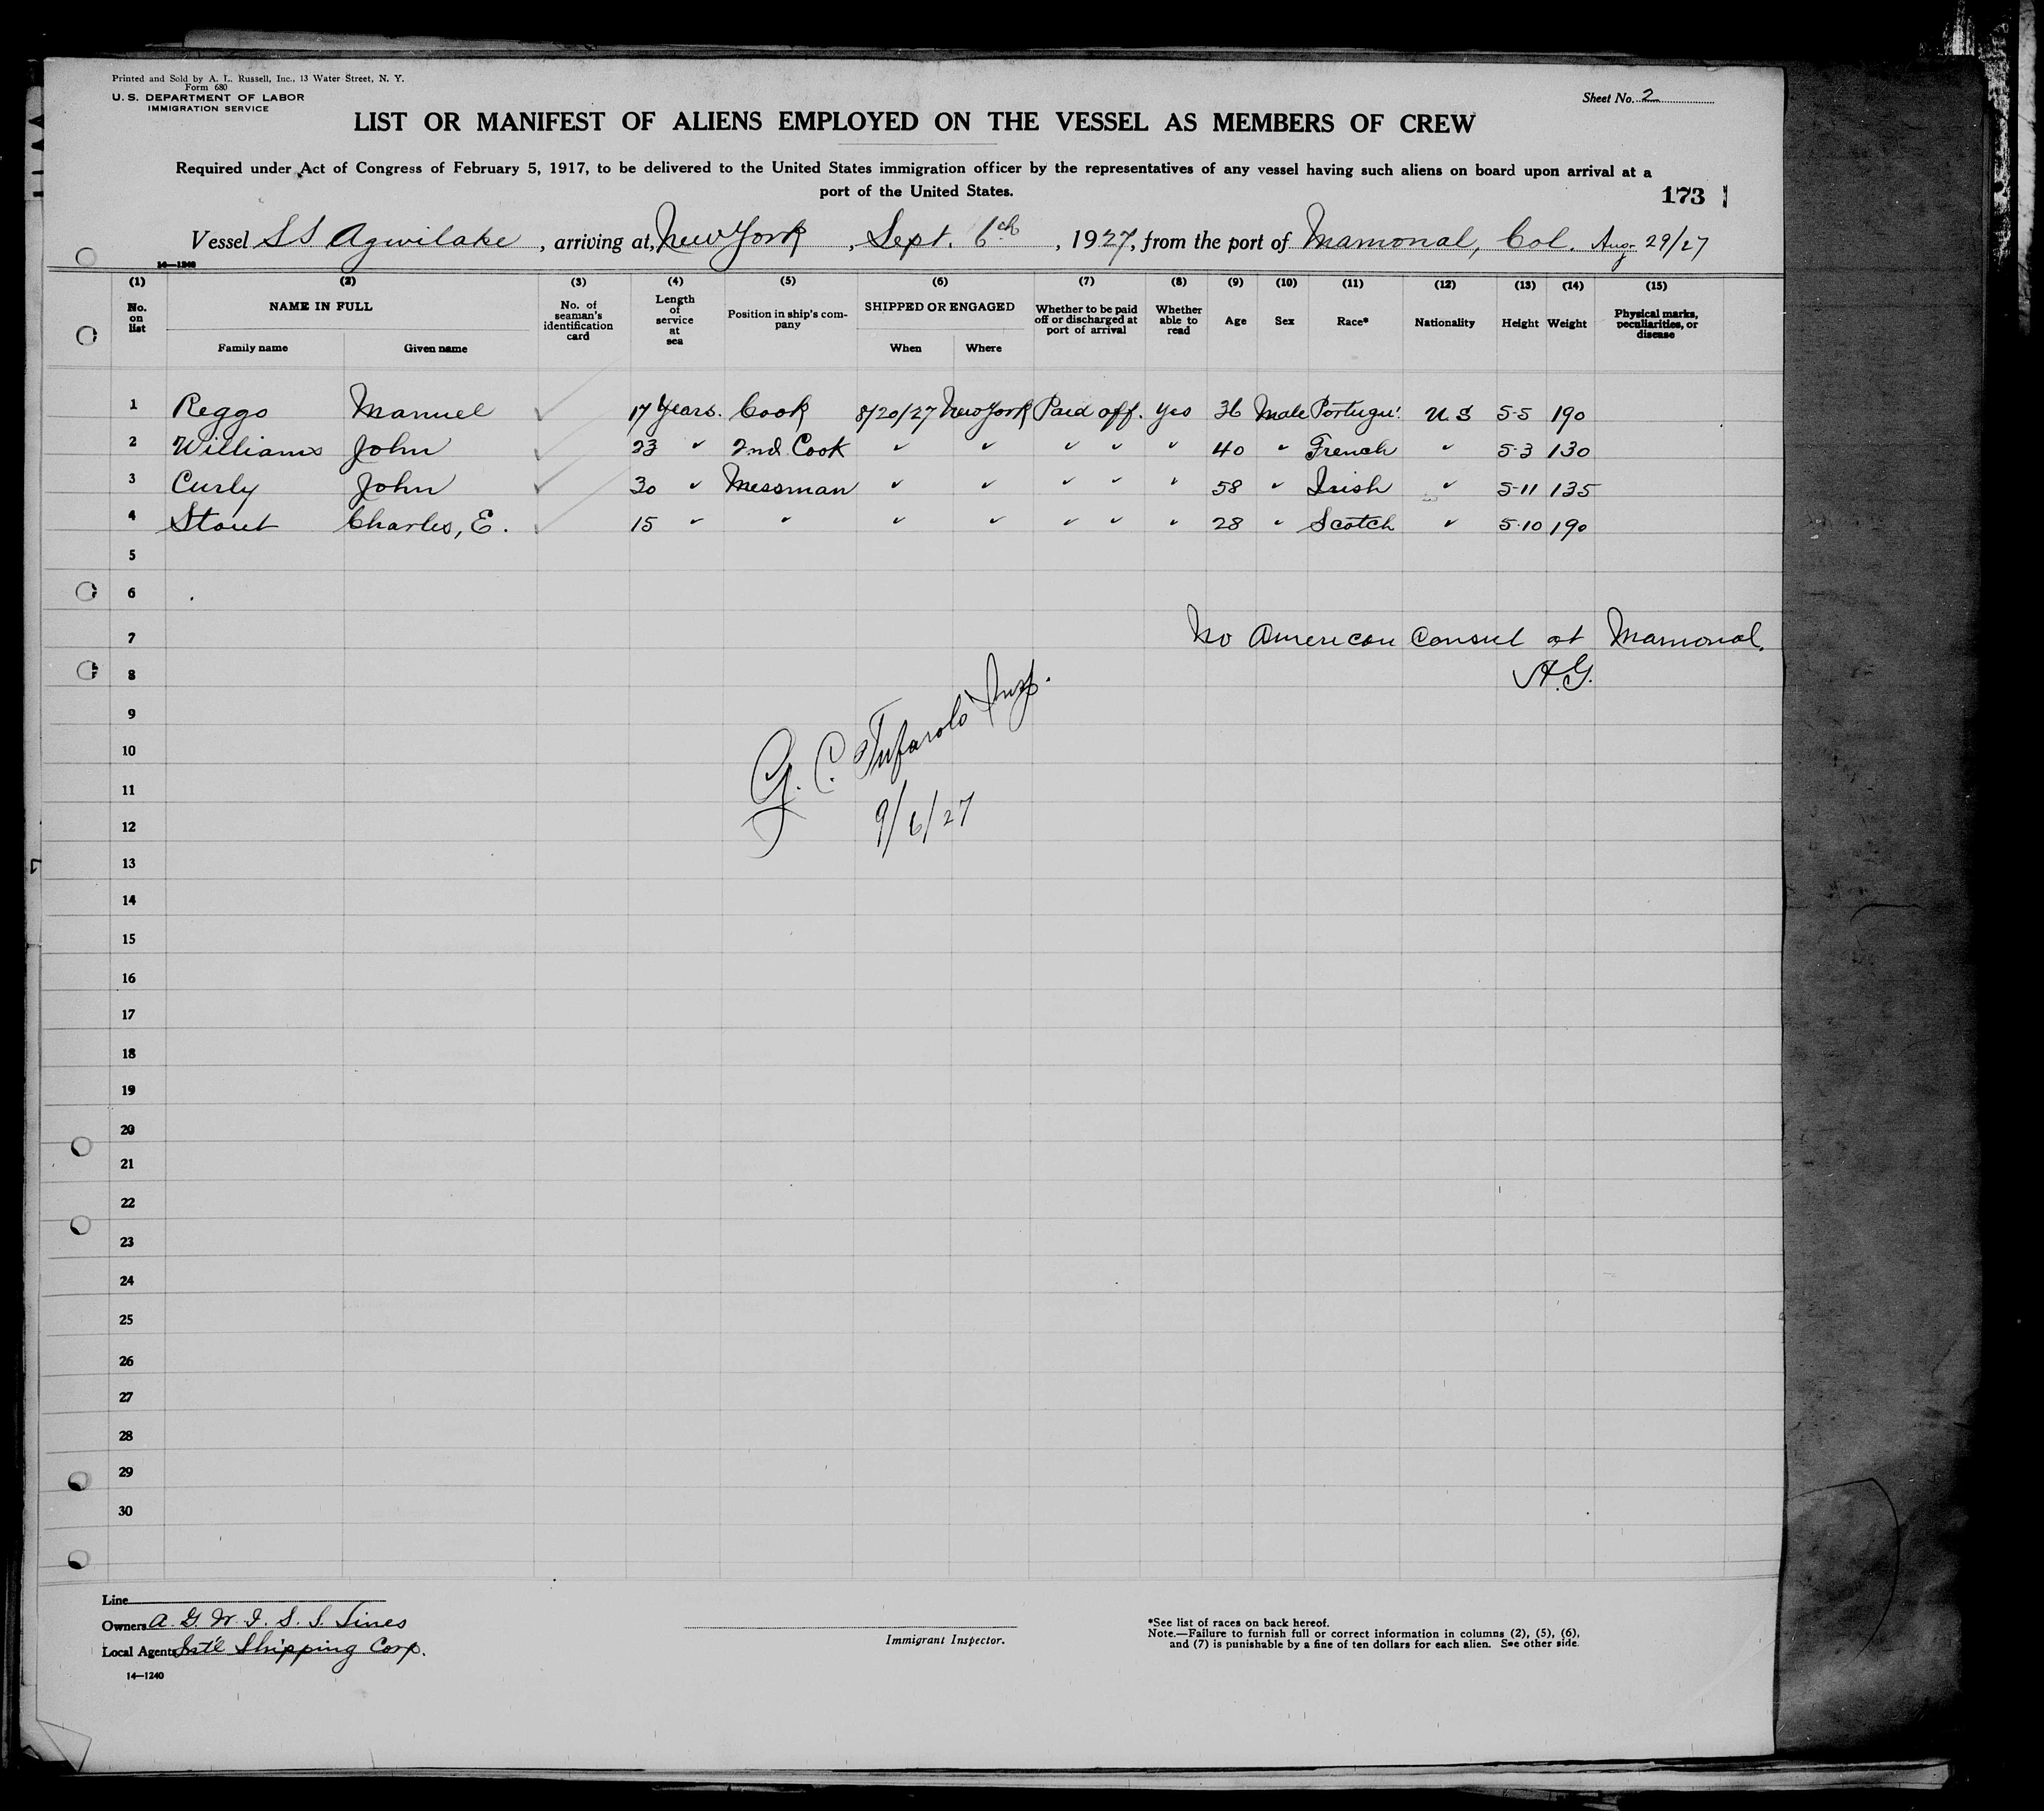 Printed and Sold by A. L. Russell, Inc., 13 Water Street, N. Y.
Form 680
U. S. DEPARTMENT OF LABOR
IMMIGRATION SERVICE
Sheet No. 2
LIST OR MANIFEST OF ALIENS EMPLOYED ON THE VESSEL AS MEMBERS OF CREW
Required under Act of Congress of February 5, 1917, to be delivered to the United States immigration officer by the representatives of any vessel having such aliens on board upon arrival at a
port of the United States.
173
Vessel SS Agwilake, arriving at, New York, Sept. 6th, 1927, from the port of Mamonal, Col. Aug 29/27
14—1240
(1) (2) (3) (4) (5) (6) (7) (8) (9) (10) (11) (12) (13) (14) (15)
No. on list
NAME IN FULL
Family name
Given name
No. of seaman's identification card
Length of service at sea
Position in ship's company
SHIPPED OR ENGAGED
When
Where
Whether to be paid off or discharged at port of arrival
Whether able to read
Age
Sex
Race*
Nationality
Height
Weight
Physical marks, peculiarities, or disease
1 Reggo Manuel ✓ 17 Years. Cook 8/20/27 New York Paid off. Yes 36 Male Portugu'. U S 5-5 190
2 Williams John ✓ 23 " 2nd Cook " " " " " 40 " French " 5-3 130
3 Curly John ✓ 30 " Messman " " " " " 58 " Irish " 5-11 135
4 Stout Charles, E. ✓ 15 " " " " " " " 28 " Scotch " 5-10 190
5
6
7 No American Consul at Mamonal.
8 A.G.
9
10 G. C. Tufarolo Insp.
11
12 9/6/27
13
14
15
16
17
18
19
20
21
22
23
24
25
26
27
28
29
30
Line
Owners A. G. W. I. S. S. Lines
Local Agents Int'l Shipping Corp.
14—1240
Immigrant Inspector.
*See list of races on back hereof.
Note.—Failure to furnish full or correct information in columns (2), (5), (6),
and (7) is punishable by a fine of ten dollars for each alien. See other side.